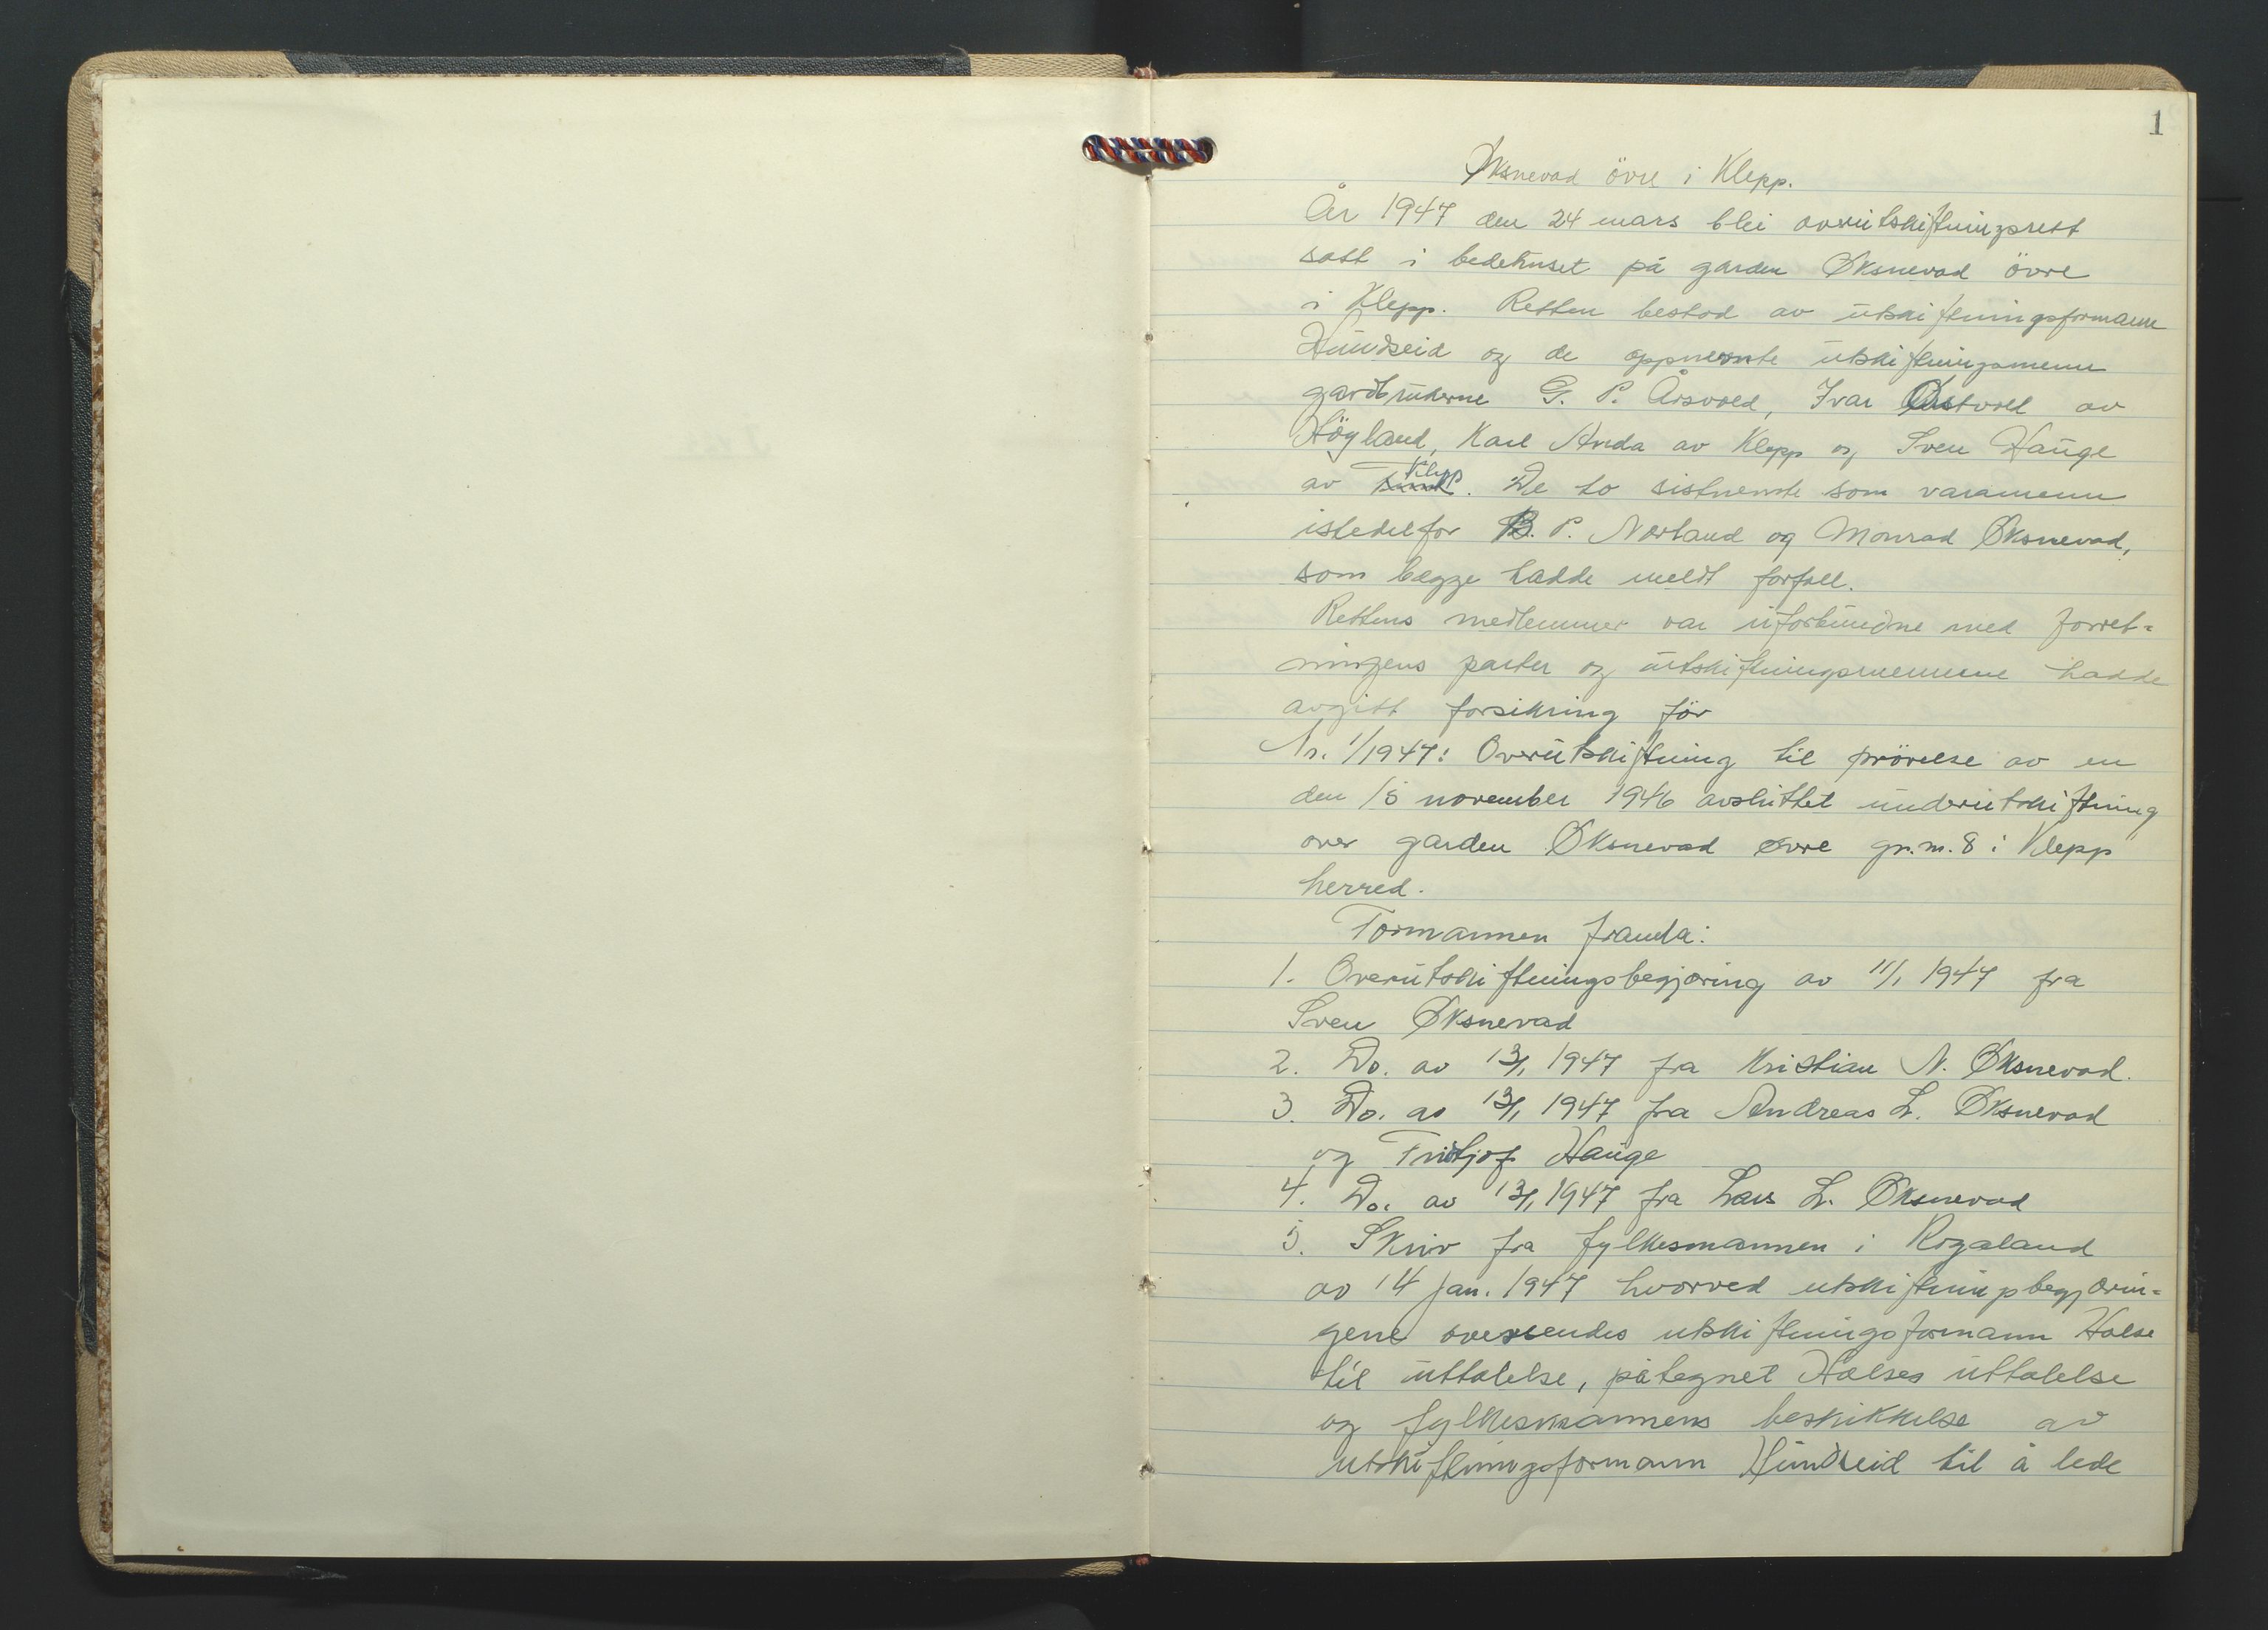 1
Øksnevad övre i Klepp.
År 1947 den 24 mars blei overutskiftningsrett
satt i bedehuset på garden Øksnevad övre
i Klepp. Retten bestod av utskiftningsformann
Hundseid og de oppnevnte utskiftningsmenn
gardbrukerne G. P. Årsvold, Ivar Østvoll av
Högland, Karl Anda av Klepp og Sven Hauge
av Klepp. De to sistnevnte som varamenn
istedetfor B. P. Norland og Monrad Øksnevad,
som begge hadde meldt forfall.
Rettens medlemmer var uforbundne med forret-
ningens parter og utskiftningsmennene hadde
avgitt forsikring för
Nr. 1/1947: Overutskiftning til prövelse av en
den 15 november 1946 avsluttet underutskiftning
over garden Øksnevad øvre gr.nr. 8 i Klepp
herred.
Formannen framla:
1. Overutskiftningsbegjæring av 11/1 1947 fra
Sven Øksnevad
2. Do. av 13/1 1947 fra Kristian N. Øksnevad.
3. Do. av 13/1 1947 fra Andreas L. Øksnevad
og Fridtjof Hauge
4. Do. av 13/1 1947 fra Lars L. Øksnevad
5. Skriv fra fylkesmannen i Rogaland
av 14 jan. 1947 hvorved utskiftningsbegjærin-
gene oversendes utskiftningsformann Halse
til uttalelse, påtegnet Halses uttalelse
og fylkesmannens beskikkelse av
utskiftningsformann Hundseid til å lede